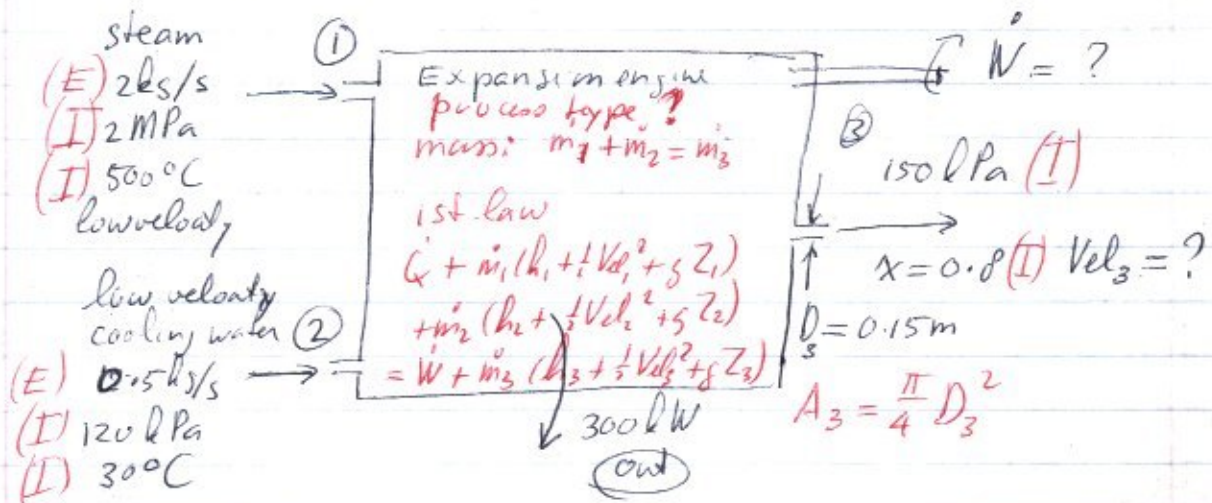 steam
①
(E) 2kg/s
(I) 2MPa
(I) 500°C
low velocity
low velocity
cooling water ②
(E) 0.5kg/s
(I) 120kPa
(I) 30°C
Expansion engine
process type ?
mass: ṁ₁ + ṁ₂ = ṁ₃
1st law
Q̇ + ṁ₁(h₁ + ½Vel₁² + gZ₁)
+ ṁ₂(h₂ + ½Vel₂² + gZ₂)
= Ẇ + ṁ₃(h₃ + ½Vel₃² + gZ₃)
300kW
out
Ẇ = ?
③
150kPa (I)
x = 0.8 (I) Vel₃ = ?
D₃ = 0.15m
A₃ = π/4 D₃²